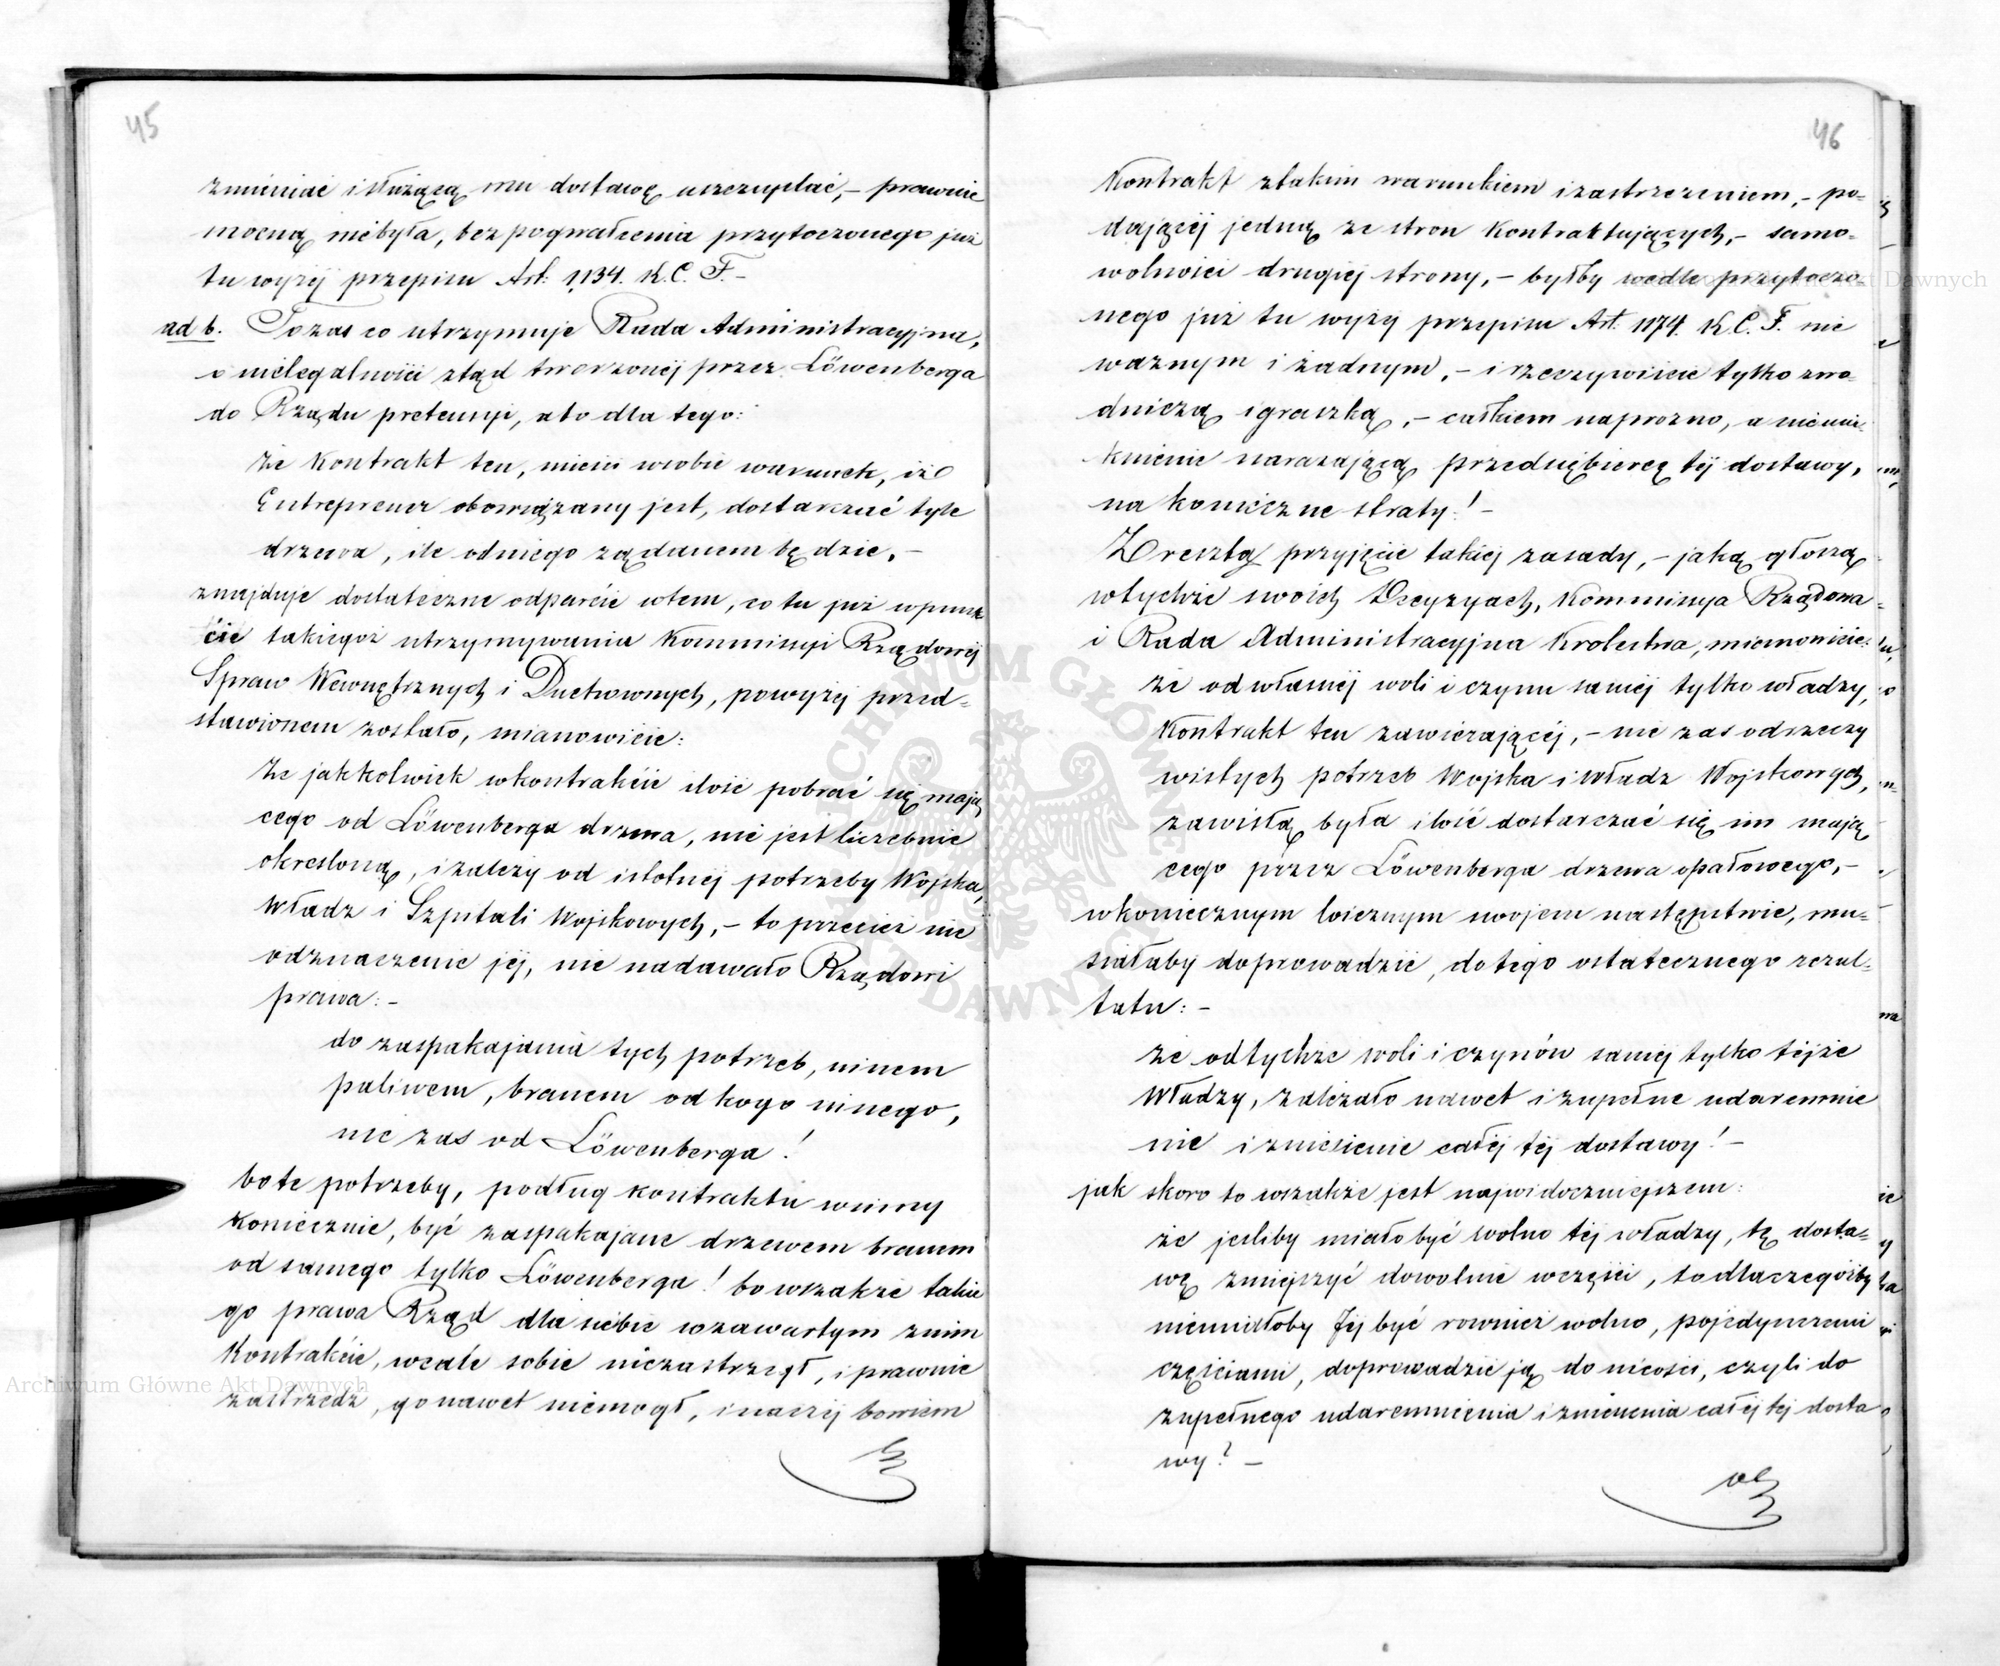 45
zmieniać i służącą mu dostawę uszczuplać, – prawnie
mocną niebyła, bez pogwałcenia przytoczonego już
tu wyżéj przepisu Art: 1134. K. C. F. –
ad b. To zaś co utrzymuje Rada Administracyjna,
o nielegalności ztąd tworzonéj przez Löwenberga
do Rządu pretensyi, a to dla tego:
że kontrakt ten, mieści wsobie warunek, iż
Entreprener obowiązany jest, dostarczać tyle
drzewa, ile odniego żądanem będzie, –
znajduje dostateczne odparcie wtem, co tu już wpunk
cie takiegoż utrzymywania Kommissyi Rządowéj
Spraw Wewnętrznych i Duchownych, powyżéj przed=
stawionem zostało, mianowicie:
że jakkolwiek wkontrakcie ilość pobrać się mają
cego od Löwenberga drzewa, nie jest liczebnie
określoną, i zależy od istotnéj potrzeby Wojska,
Władz i Szpitali Wojskowych, – to przecież nie
odznaczenie jéj, nie nadawało Rządowi
prawa: –
do zaspakajania tych potrzeb, innem
paliwem, branem od kogo innego,
nie zas od Löwenberga!
bo te potrzeby, podług kontraktu winny
koniecznie, być zaspakajane drzewem branem
od samego tylko Löwenberga! bo wszakże takie
go prawa Rząd dla siebie wzawartym znim
Kontrakcie, wcale sobie niezastrzegł, i prawnie
zastrzedz, go nawet niemogł, inaczéj bowiem
46
Kontrakt ztakim warunkiem i zastrzezeniem, – po=
dającéj jedną ze stron Kontraktujących, – samo=
wolności drugiéj strony, – byłby wedle przytoczo=
nego już tu wyżéj przepisu Art. 1174. K. C. F. nie
ważnym i żadnym, – i rzeczywiście tylko zwo=
dniczą igraszką, – całkiem naprozno, a nieuni=
knienie narażającą przedsiębiercę téj dostawy,
na konieczne straty! –
Zresztą przyjęcie takiéj zasady, – jaką głoszą
wtychże swoich Decyzyach, Kommissya Rządowa
i Rada Administracyjna Krolestwa, mianowicie:
że od własnéj woli i czynu saméj tylko władzy,
Kontrakt ten zawierającéj, – nie zas odrzeczy
wistych potrzeb Wojska i Władz Wojskowych,
zawisłą była ilość dostarczać się im mają
cego przez Löwenberga drzewa opałowego, –
wkoniecznym loicznym swojem następstwie, mu=
siałaby doprowadzić, do tego ostatecznego rezul=
tatu: –
że od tychże woli i czynów saméj tylko téjże
Władzy, zależało nawet i zupełne udaremnie
nie i zniesienie całéj téj dostawy! –
jak skoro to wszakże jest najwidoczniejszem:
że jesliby miało być wolno téj władzy, tę dosta=
wę zmiejszyć dowolnie wczęści, to dlaczegożby
niemiałoby Jéj być rownież wolno, pojedynczemi
częściami, doprowadzić ją do nicości, czyli do
zupełnego udaremnienia i zniesienia całéj téj dosta
wy? –
ARCHIWUM GŁÓWNE
AKT DAWNYCH
Archiwum Główne Akt Dawnych